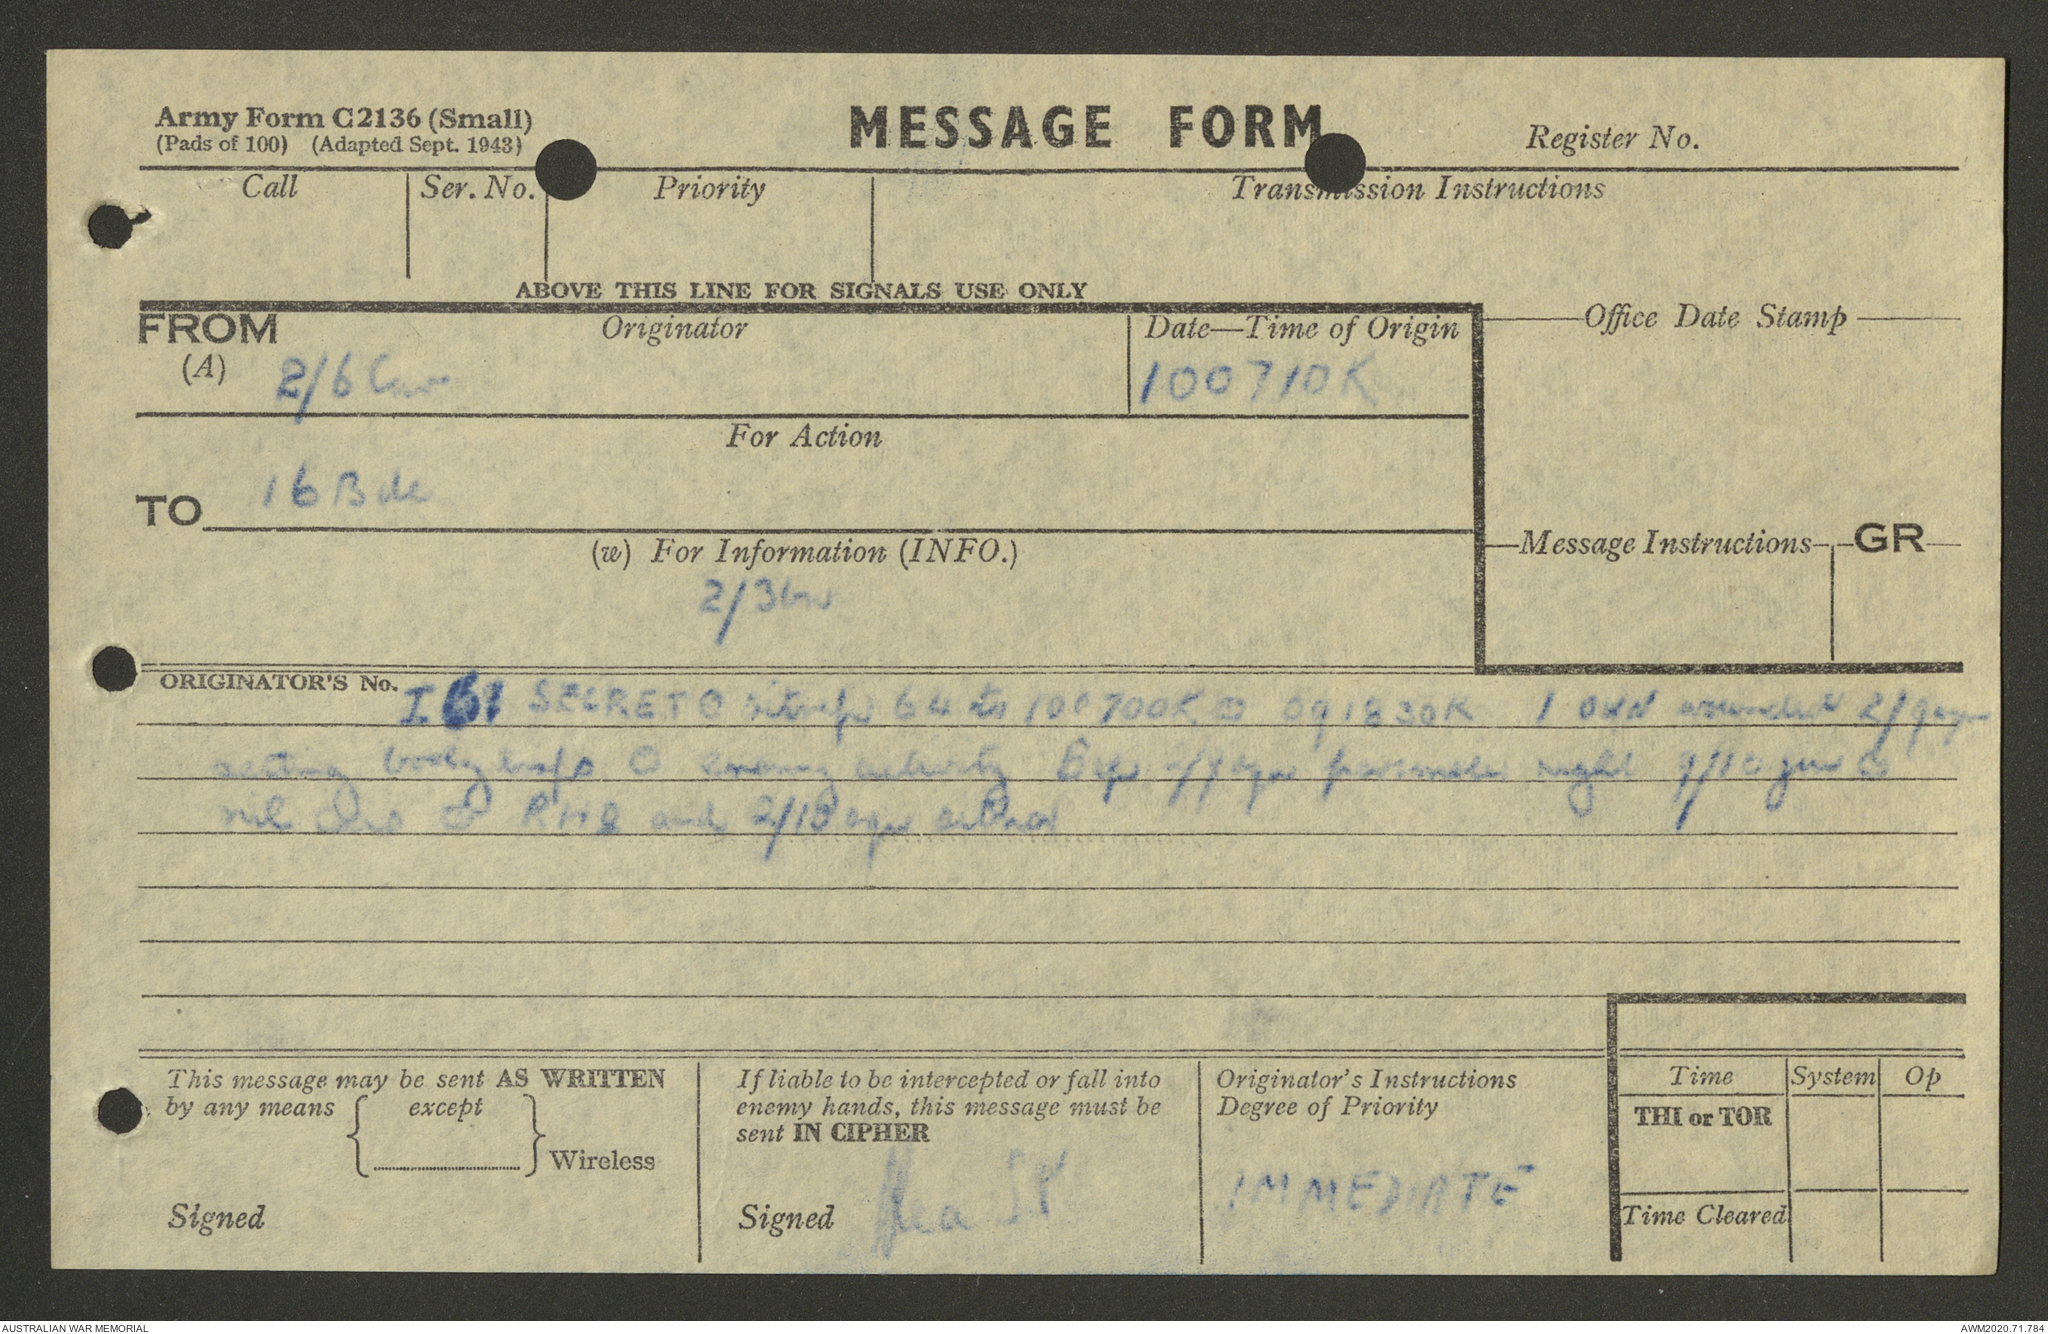 Army Form C2136 (Small)
(Pads of 100) (Adapted Sept. 1943)
MESSAGE FORM
Register No.
Call
Ser. No.
Priority
Transmission Instructions
ABOVE THIS LINE FOR SIGNALS USE ONLY
FROM
(A)
Originator
2/6 Cav
Date—Time of Origin
100710K
Office Date Stamp
For Action
TO
16 Bde
(w) For Information (INFO.)
2/3
Message Instructions
GR
ORIGINATOR'S No.
I 61 SECRET O sitrep 64 to 100700K O 091830K 1 OWN wounded 2/9
setting booby traps O enemy activity 2/9 perimeter night 9/10
nil O RHQ and 2/10
This message may be sent AS WRITTEN
by any means
except
Wireless
Signed
If liable to be intercepted or fall into
enemy hands, this message must be
sent IN CIPHER
Signed
Originator's Instructions
Degree of Priority
IMMEDIATE
Time
System
Op
THI or TOR
Time Cleared
AUSTRALIAN WAR MEMORIAL
AWM2020.71.784